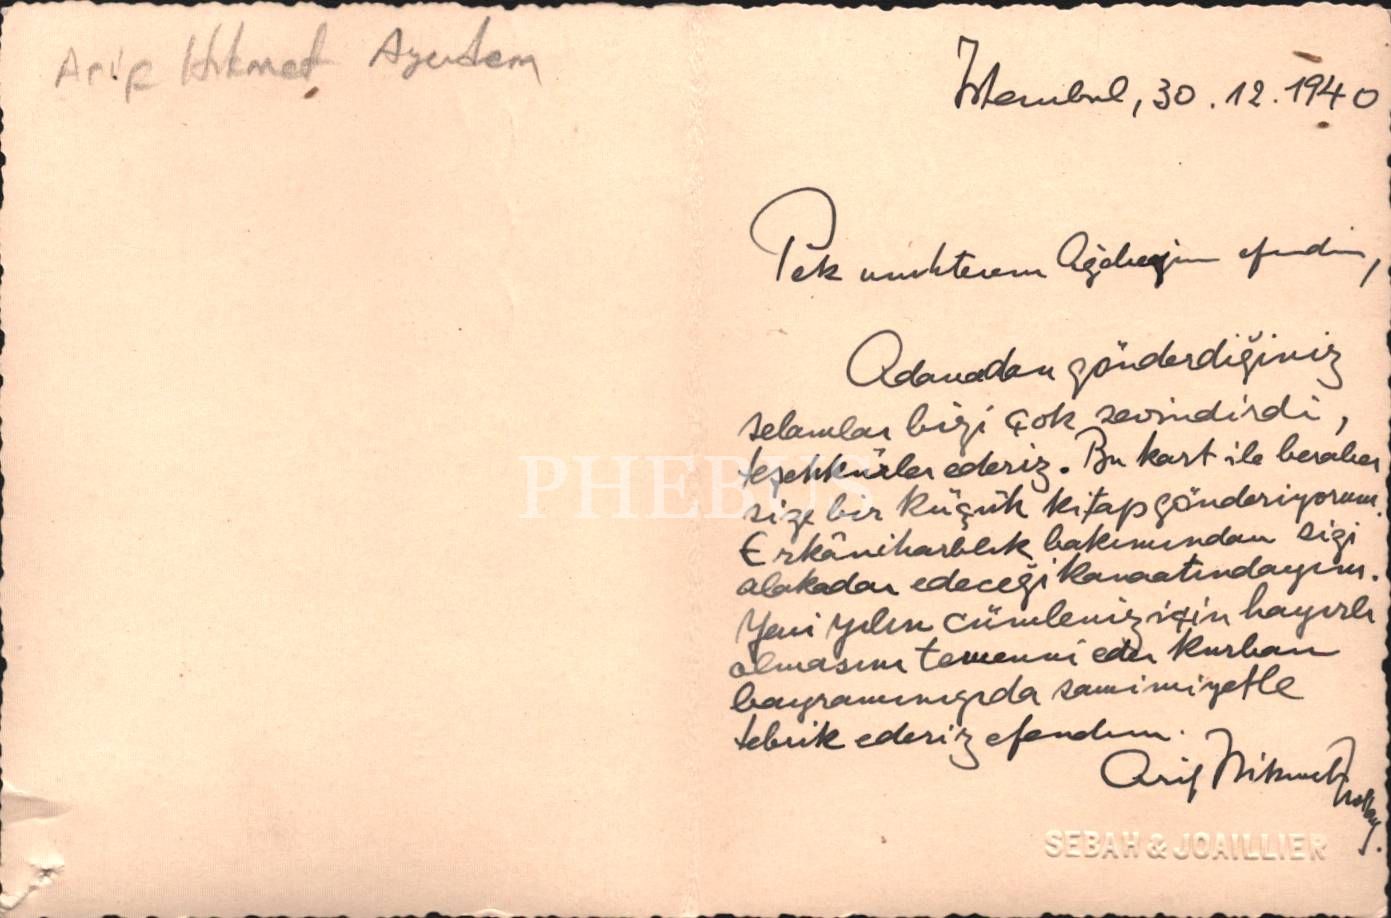 Arif Hikmet
İstanbul, 30.12.1940
Pek muhterem Ağabeyim efendim,
Adanadan gönderdiğiniz
selamlar bizi çok sevindirdi,
teşekkürler ederiz. Bu kart ile beraber
size bir küçük kitap gönderiyorum.
Erkâniharblık bakımından sizi
alakadar edeceği kanaatındayım.
Yeni yılın cümleniz için hayırlı
olmasını temenni eder kurban
bayramınızıda samimiyetle
tebrik ederiz efendim.
Arif Hikmet
SEBAH & JOAILLIER
PHEBUS